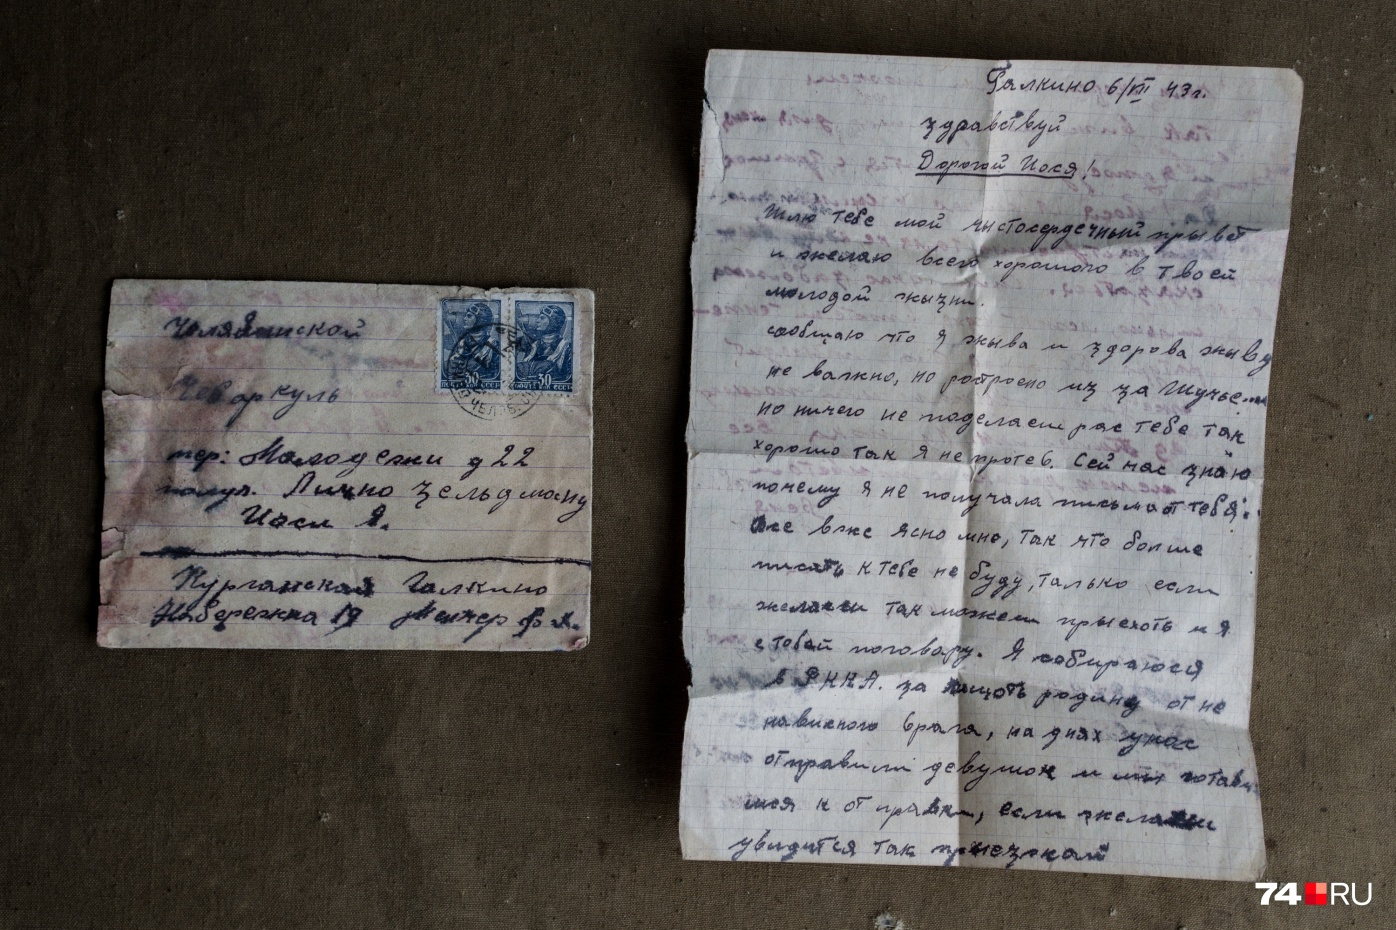 Челябинской
Чебаркуль
пер: Молодежи д 22
получ. Лично Зельдману
Иоси Я.
Курганская Галкино
Набережна 19 Мейчер
30 30
ПОЧТА СССР ПОЧТА СССР
Галкино 6/VIII 43 г.
Здравствуй
Дорогой Иося!
Шлю тебе мой чистосердечный прывет
и желаю всего хорошого в твоей
молодой жызни.
сообщаю что я жыва и здорова жыву
не важно, но ростроено из за
но ничего не поделаеш рас тебе так
хорошо так я не протев. Сей час знаю
почему я не получала письма от тебя:
все вже ясно мне, так что больше
писать к тебе не буду, только если
желаеш так можеш прыехоть и я
с тобой поговару. Я собираюся
в РККА. за щищоть родину от не
нависного врага, на днях унас
отправили девушок и мы готави
мся к отправки, если желаеш
увидится так прыезжай
74 RU